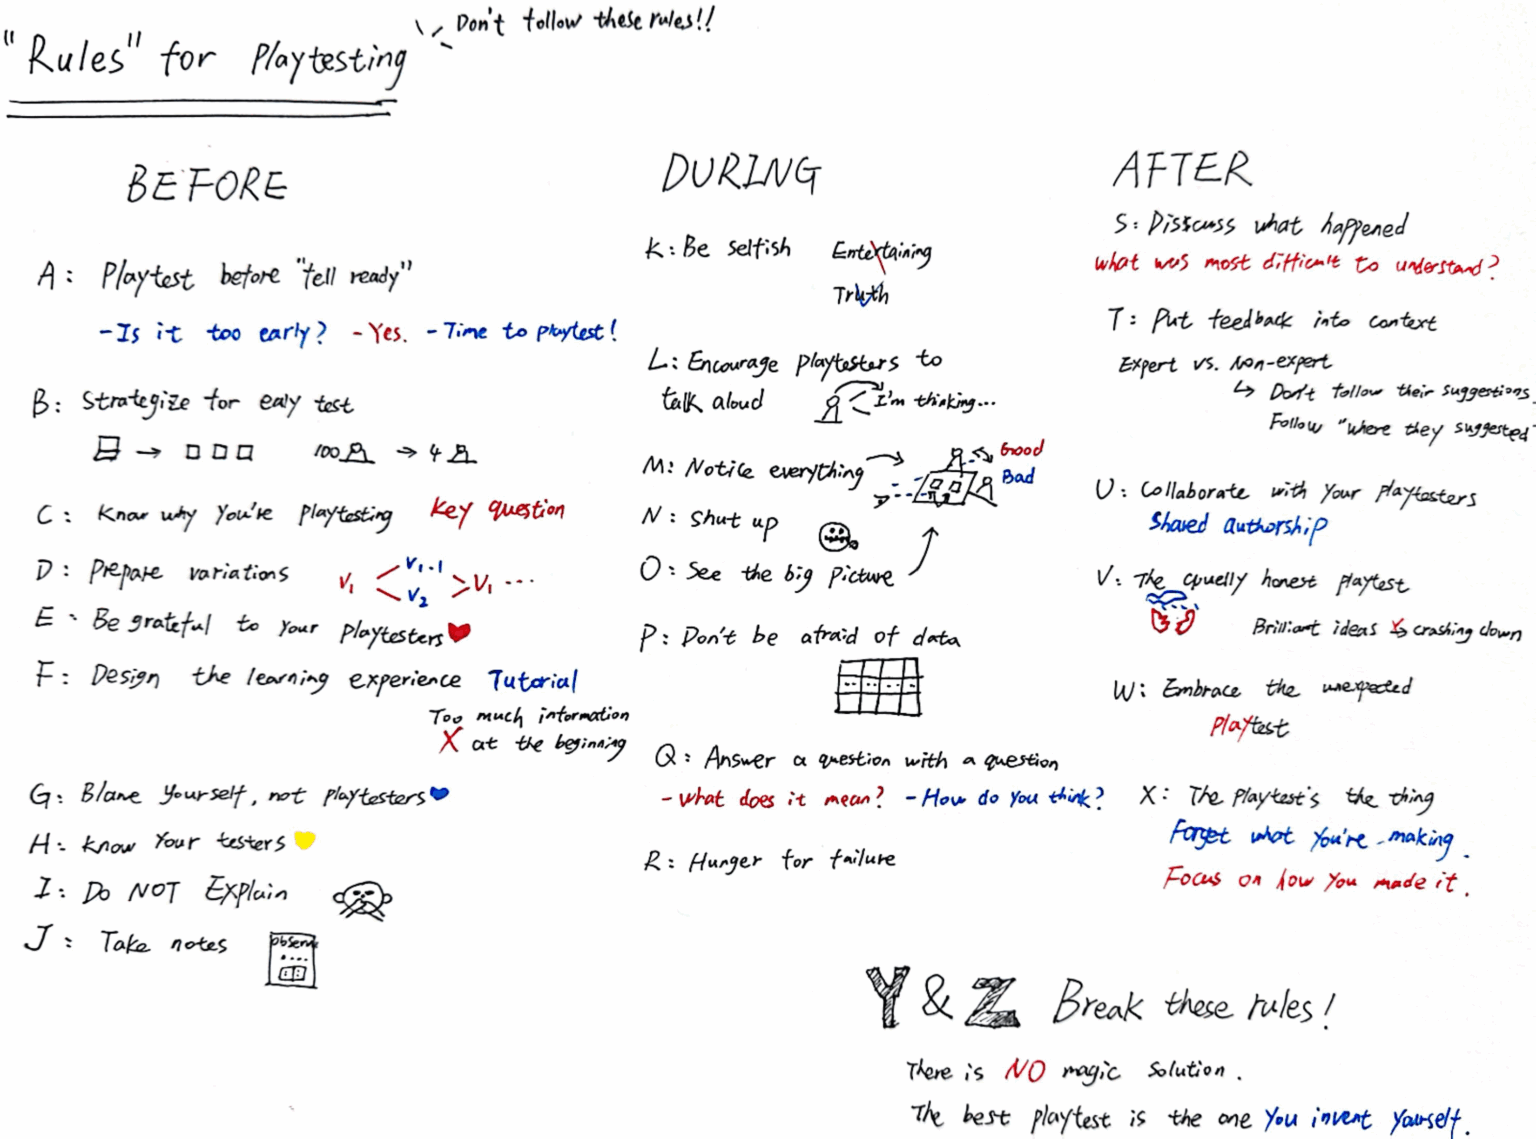 "Rules" for Playtesting
Don't follow these rules!!
BEFORE
A: Playtest before "fell ready"
-Is it too early? -Yes. -Time to playtest!
B: Strategize for ealy test
100 → 4
C: Know why you're playtesting Key question
D: Prepare variations V1 V1.1 V2 V1 ...
E: Be grateful to your playtesters
F: Design the learning experience Tutorial
Too much information
X at the beginning
G: Blame yourself, not playtesters
H: Know your testers
I: Do NOT Explain
J: Take notes
DURING
K: Be selfish Entertaining
Truth
L: Encourage playtesters to
talk aloud I'm thinking...
M: Notice everything Good
Bad
N: Shut up
O: See the big picture
P: Don't be afraid of data
Q: Answer a question with a question
-What does it mean? -How do you think?
R: Hunger for failure
AFTER
S: Disscuss what happened
What was most difficult to understand?
T: Put feedback into context
Expert vs. Non-expert
↳ Don't follow their suggestions,
Follow "where they suggested"
U: Collaborate with your playtesters
Shared authorship
V: The cruelly honest playtest
Brilliant ideas ↳ crashing down
W: Embrace the unexpected
playtest
X: The playtest's the thing
Forget what you're making.
Focus on how you made it.
Y & Z Break these rules!
There is NO magic solution.
The best playtest is the one you invent yourself.